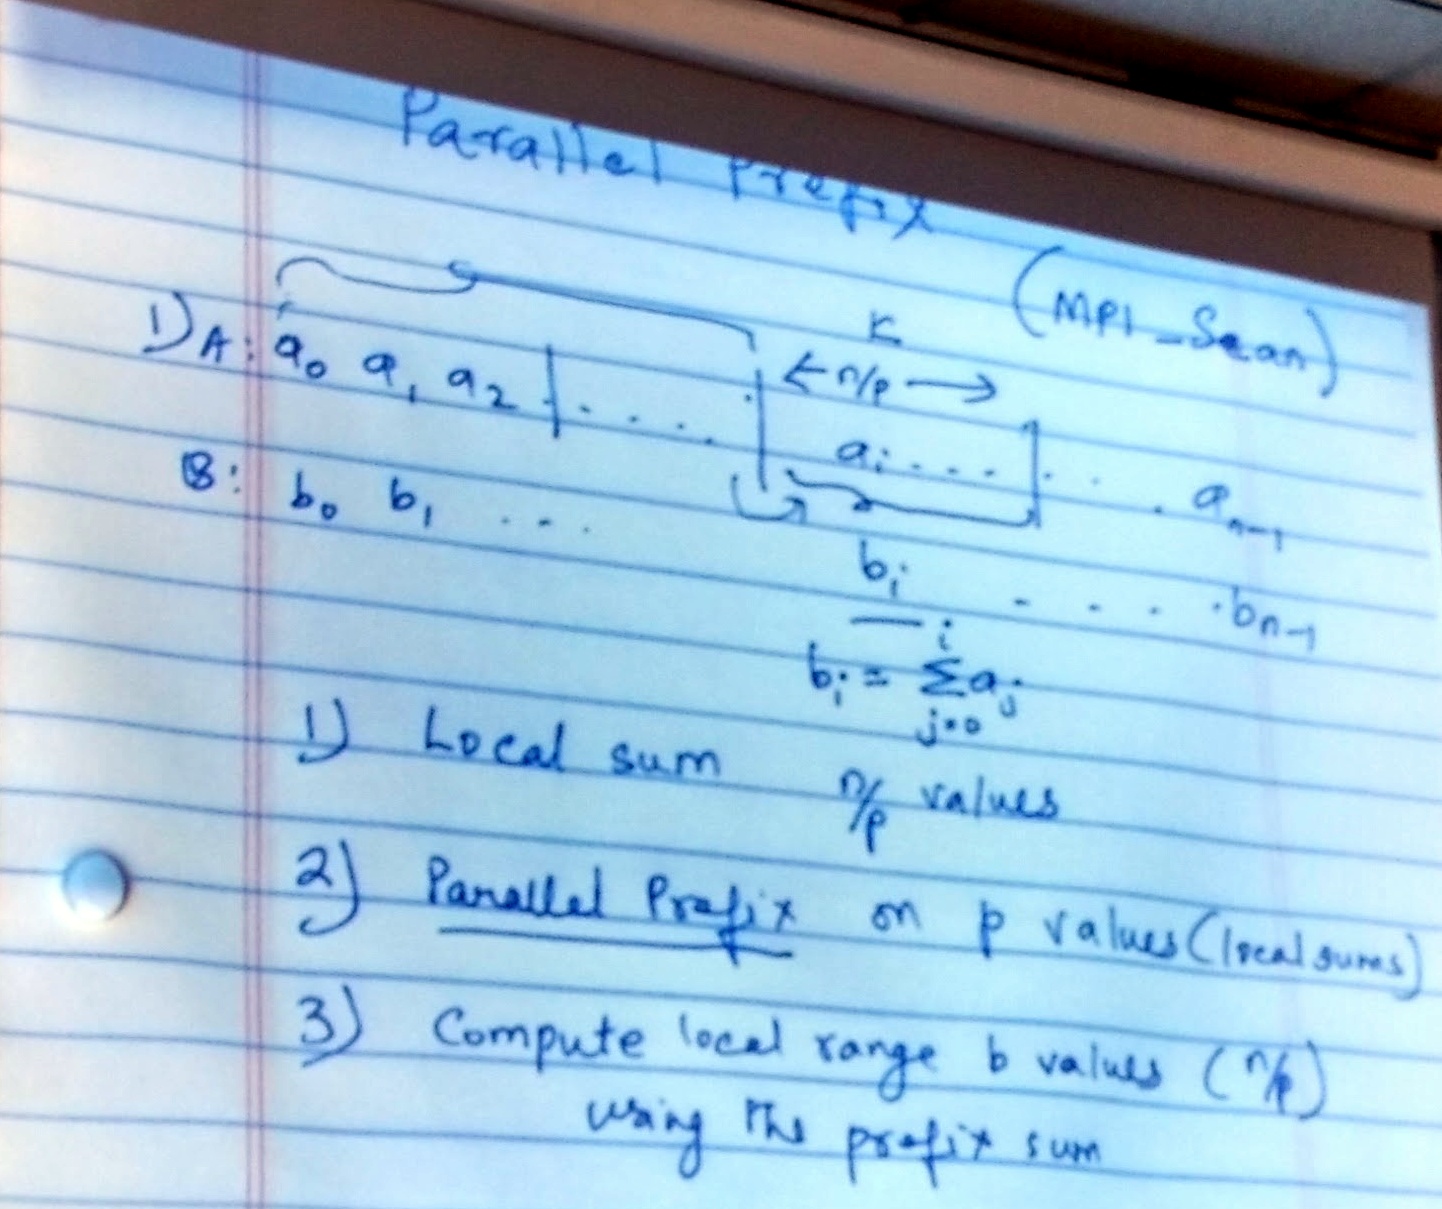 Parallel Prefix
(MPI_Scan)
K
← n/p →
1) A: a₀ a₁ a₂ | . . . . . | aᵢ . . . | . . . aₙ₋₁
B: b₀ b₁ . . . bᵢ . . . . bₙ₋₁
bᵢ = Σ_{j=0}^{i} aⱼ
1) Local sum n/p values
2) Parallel Prefix on p values (local sums)
3) Compute local range b values (n/p)
using the prefix sum